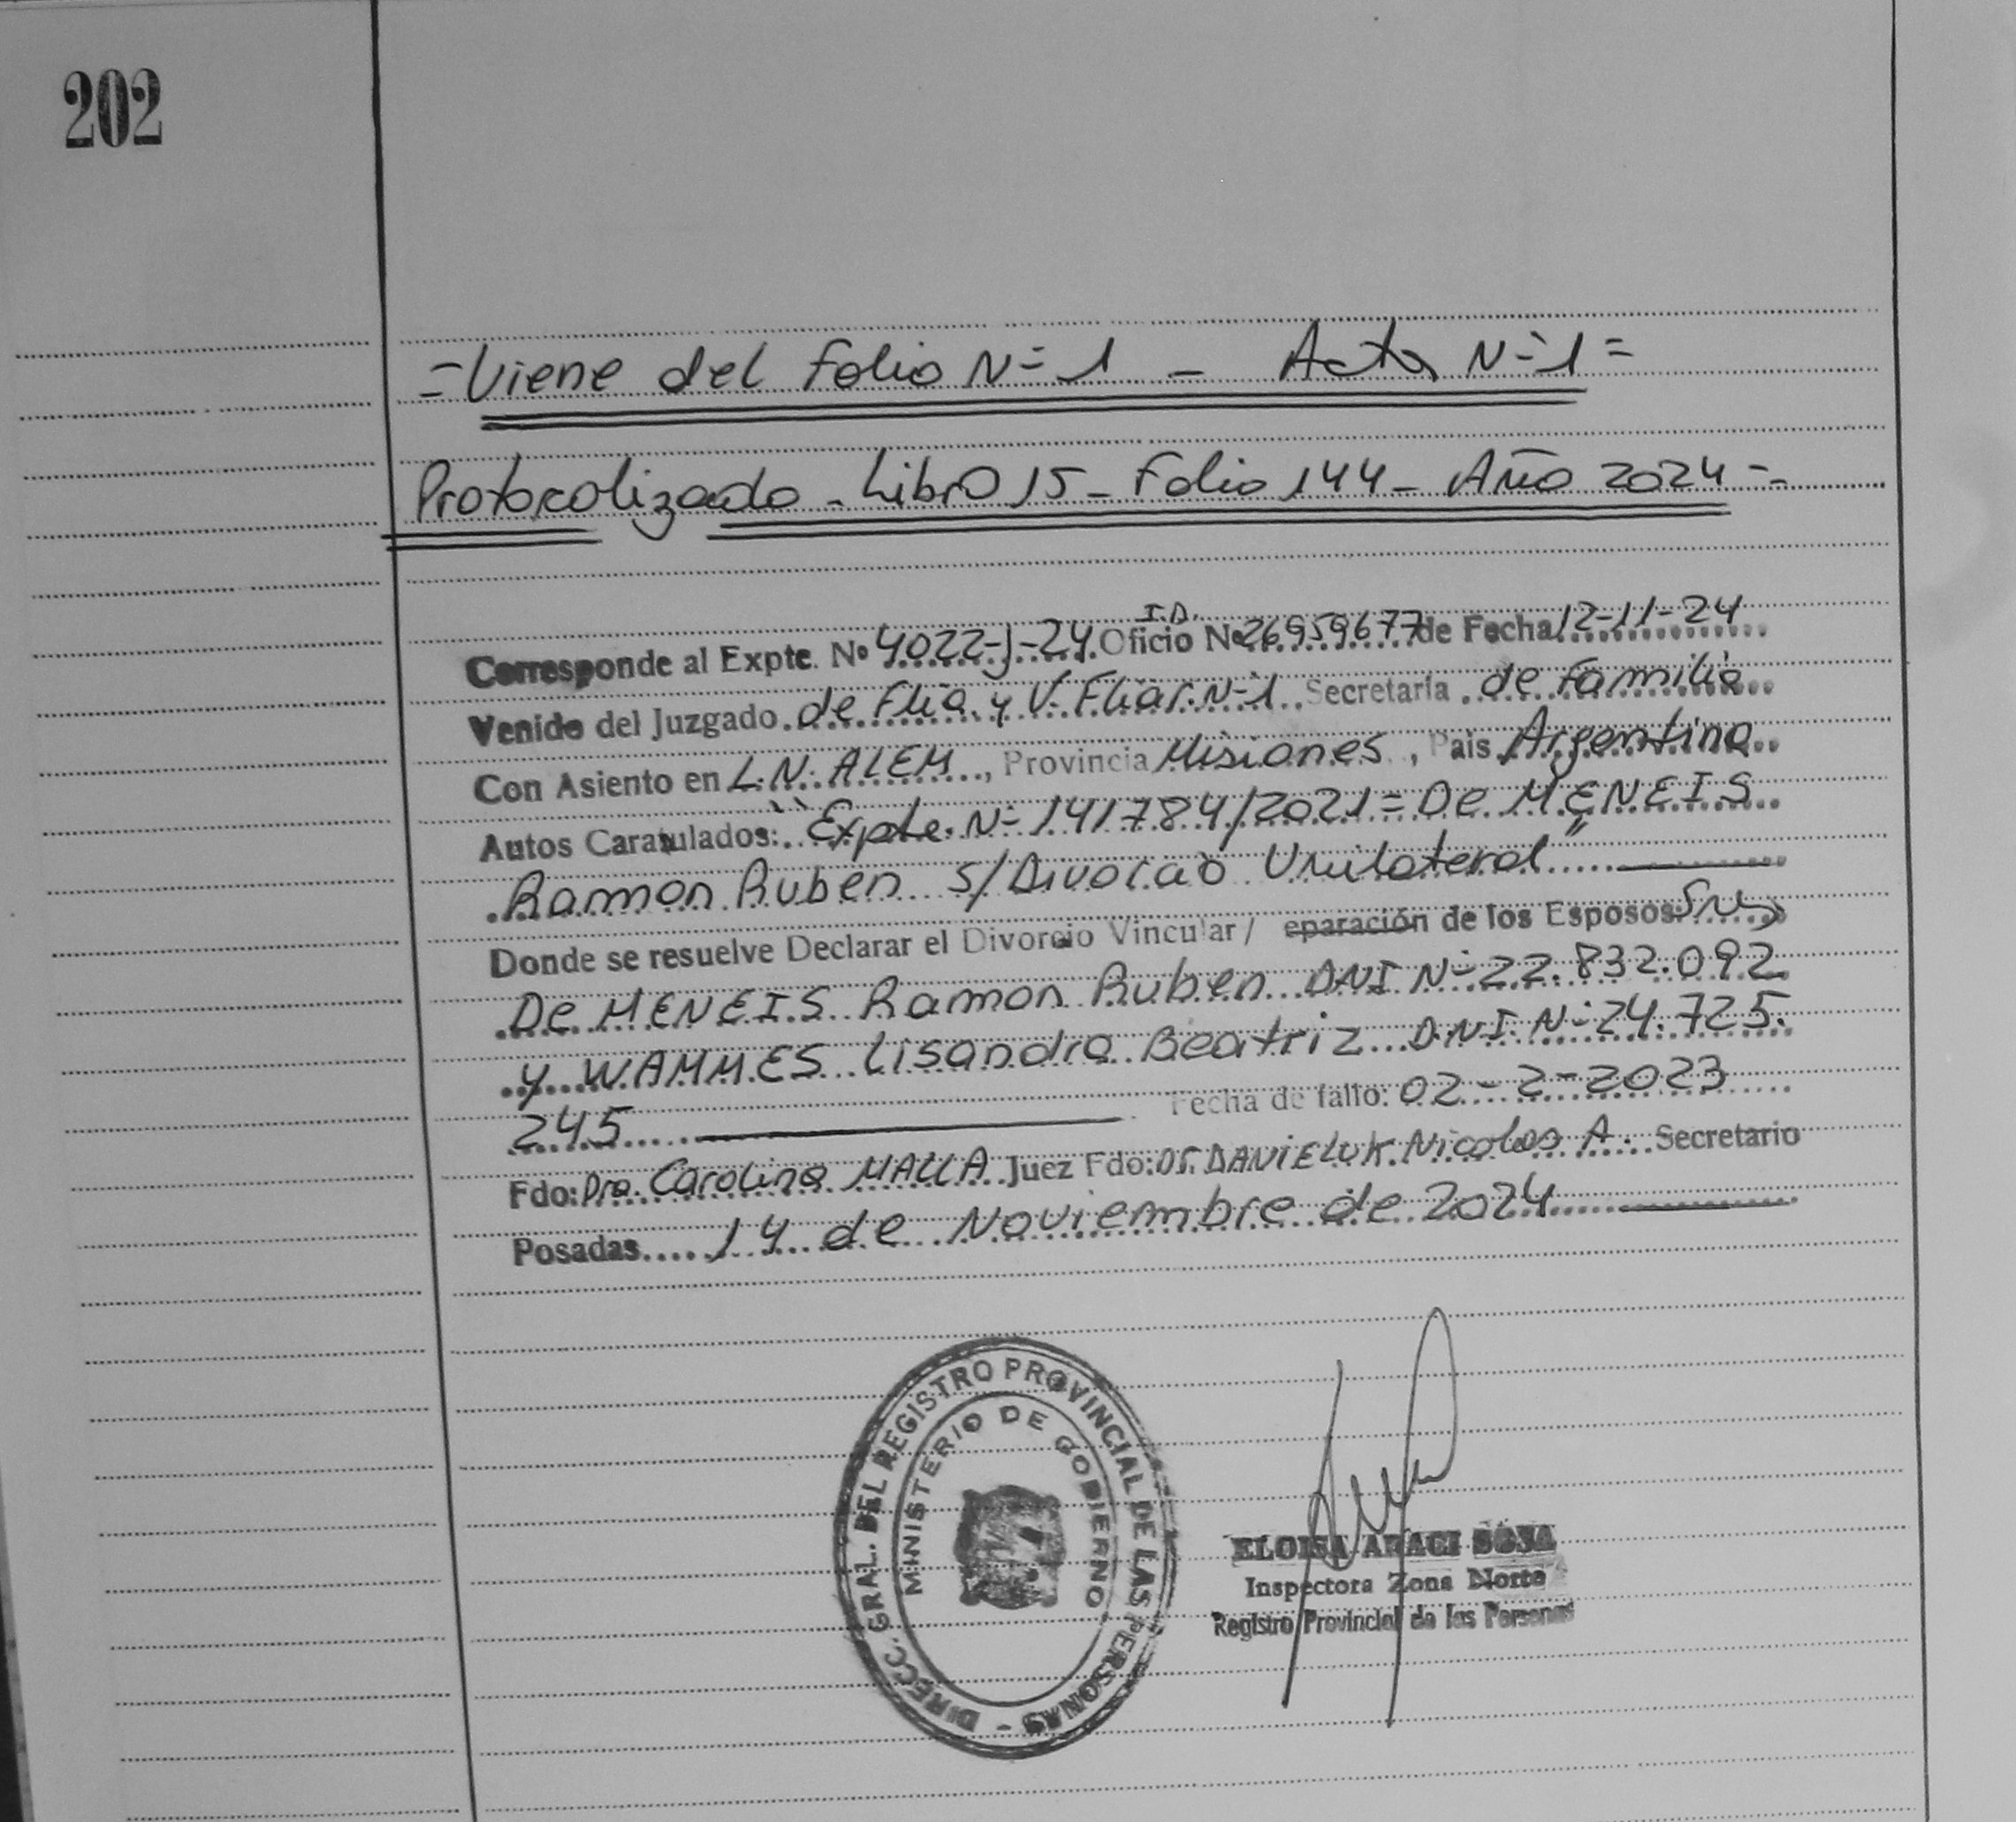 202
=Viene del Folio N=1 - Acta N=1=
Protocolizado - Libro 15 - Folio 144 - Año 2024 =
I.D.
Corresponde al Expte. Nº 4022-J-24 Oficio Nº 26959677 de Fecha 12-11-24
Venido del Juzgado de Flia y V. Fliar. N=1 Secretaría de Familia
Con Asiento en L.N. ALEM, Provincia Misiones, País Argentina
Autos Caratulados: "Expte. N=141784/2021= De MENEIS
Ramon Ruben s/Divorcio Unilateral"
Donde se resuelve Declarar el Divorcio Vincular/ eparación de los Esposos:
De MENEIS Ramon Ruben DNI N=22.832.092
y WAMMES Lisandra Beatriz D.N.I. N=24.725.
245 Fecha de fallo: 02-2-2023
Fdo: Dra. Carolina Juez Fdo: Dr. DANIELUK Nicolas A. Secretario
Posadas 14 de Noviembre de 2024
DIRECC. GRAL. DEL REGISTRO PROVINCIAL DE LAS PERSONAS -
MINISTERIO DE GOBIERNO
ELOISA ARACI SOSA
Inspectora Zona Norte
Registro Provincial de las Personas